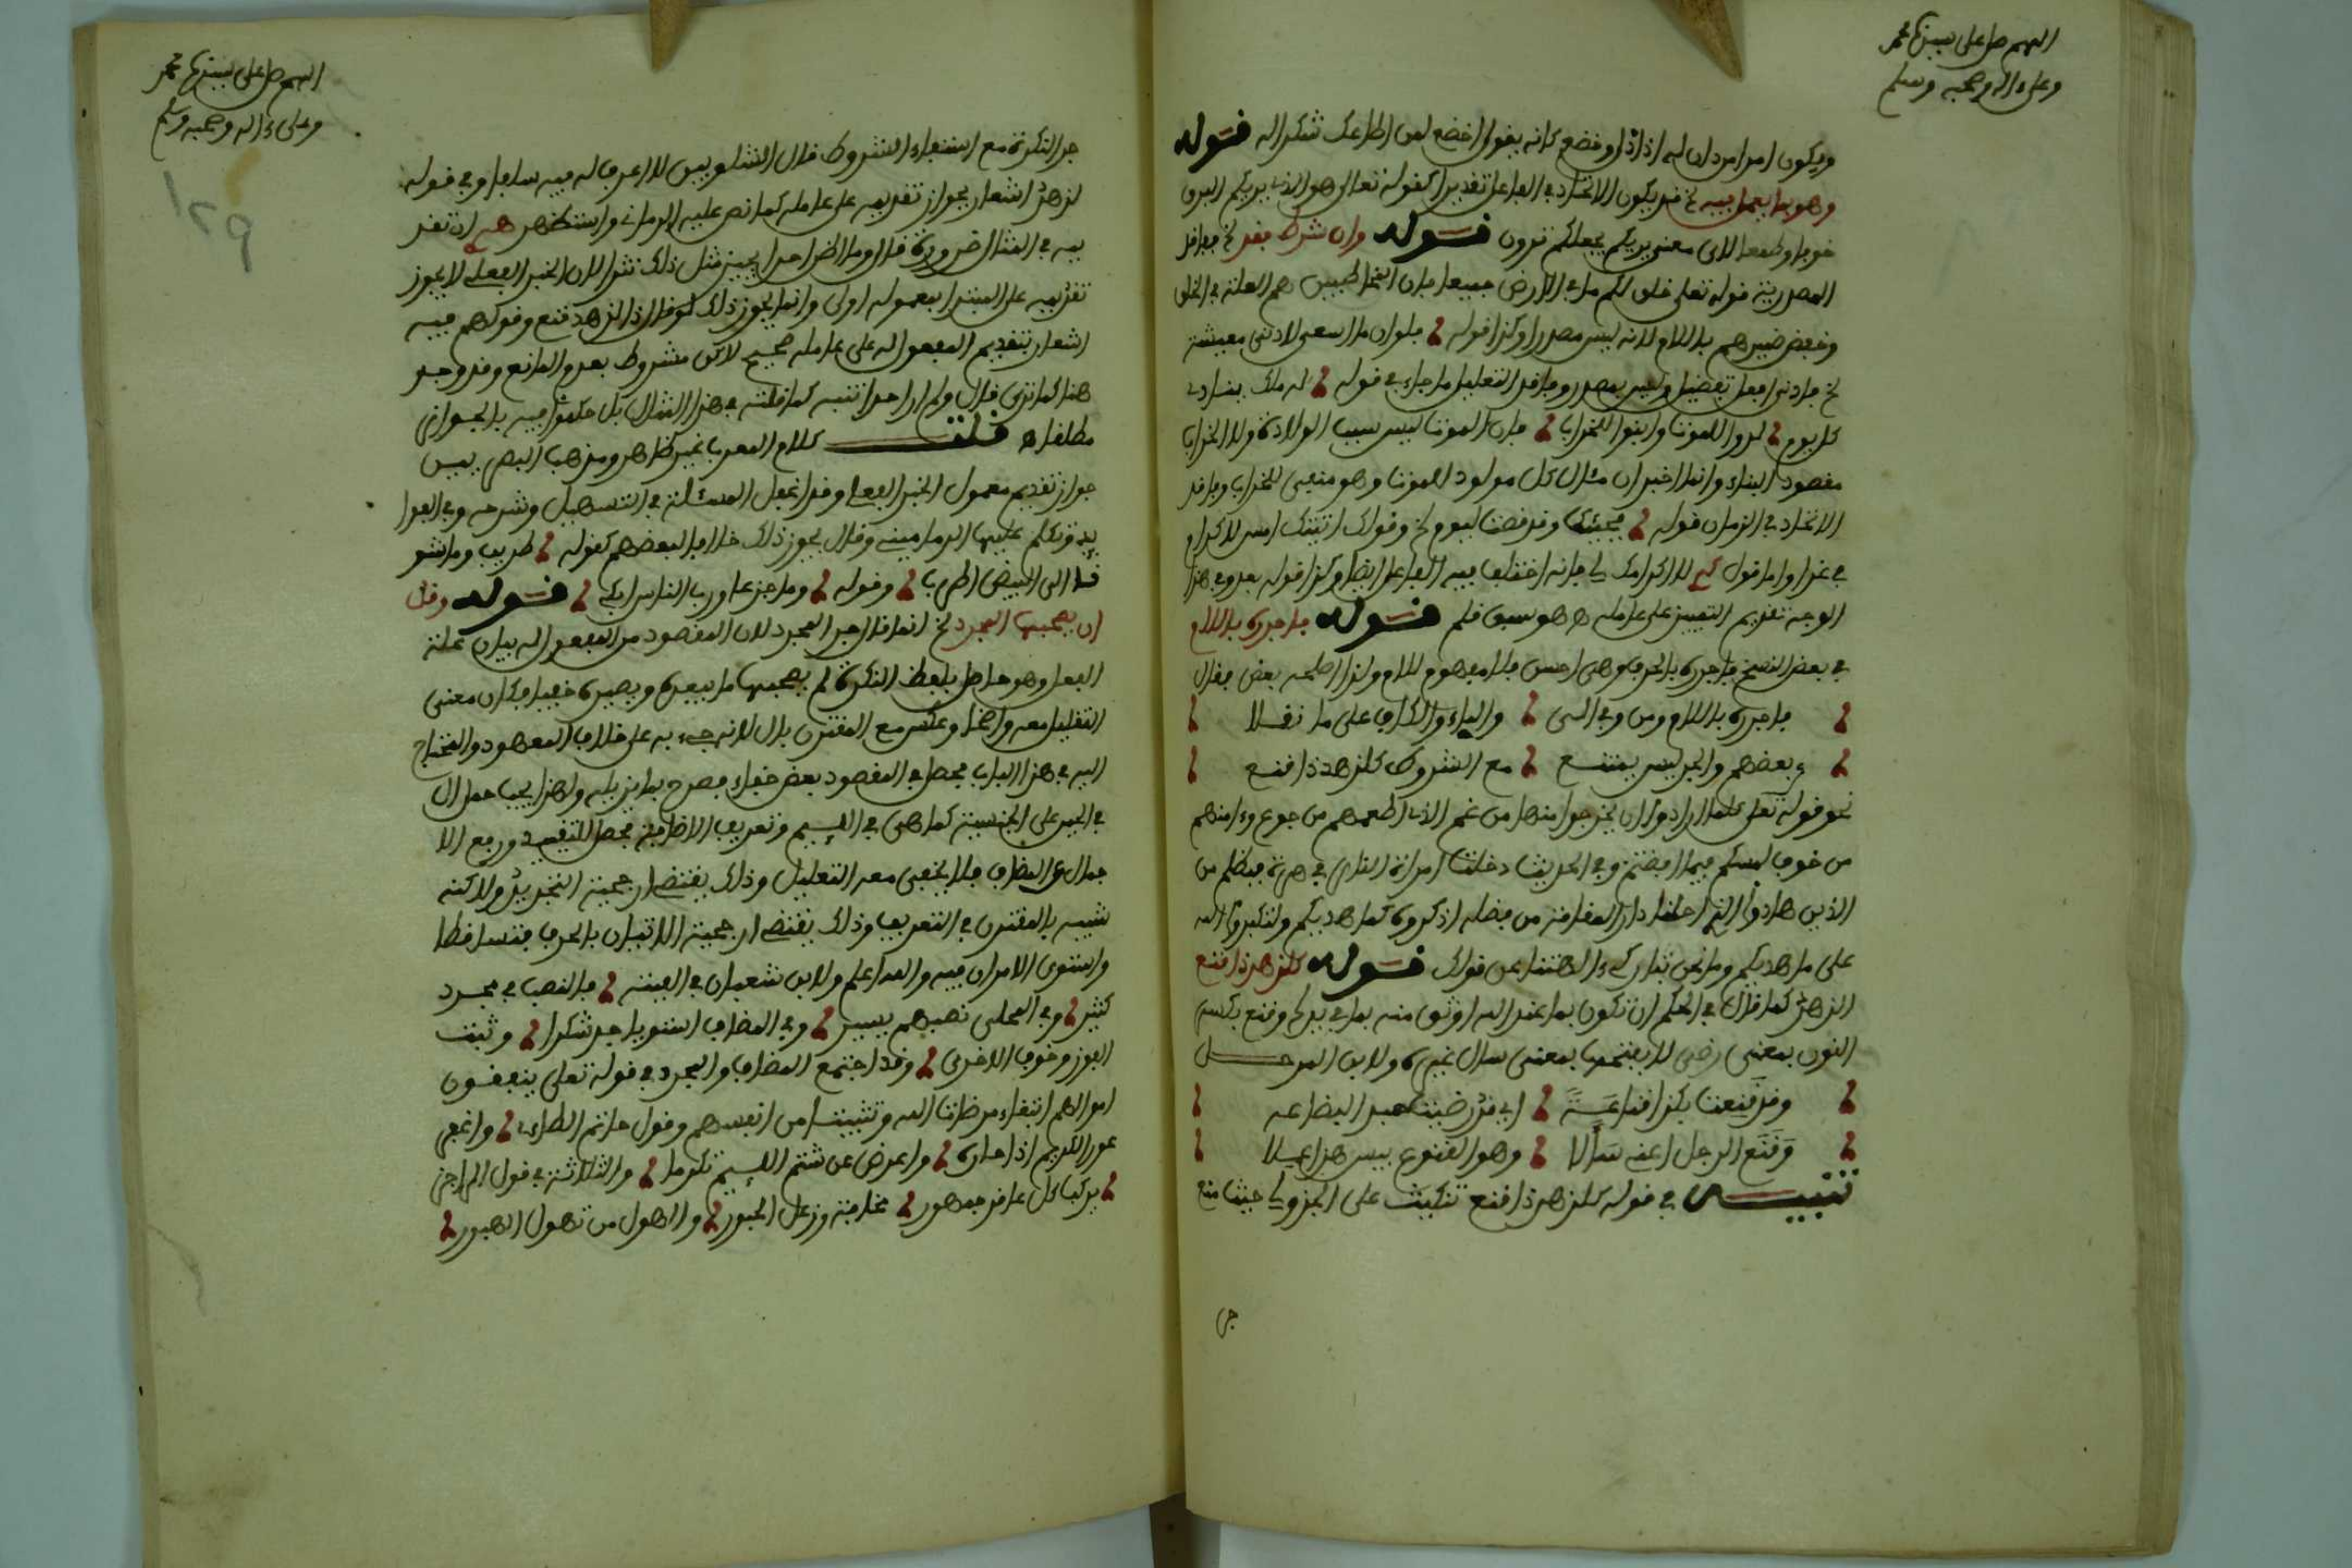 اللهم صل على سيدنا محمد
وعلى ءاله وصحبه وسلم
ويكون امرا من دان له اذا ذل وخضع كانه يقول اخضع لمن اطاعك شكرا له قوله
وهو بما يعمل فيه الخ قد يكون الاتحاد في الفاعل تقديرا كقوله تعالى هو الذي يريكم البرق
خوفا وطمعا لان معنى يريكم يجعلكم ترون قوله وان شرط فقد الخ ففاقد
المصدرية قوله تعالى خلق لكم ما في الارض جميعا فان المخاطبين هم العلة في الخلق
وخفض ضميرهم باللام لانه ليس مصدرا وكذا قوله فلو ان ما اسعى لادنى معيشة
الخ فادنى افعل تفضيل وليس بمصدر وفاقد التعليل ما جاء في قوله له ملك ينادي
كل يوم لدوا للموت وابنوا للخراب فان الموت ليس سبب الولادة ولا الخراب
مقصود البناء وانما اخبر ان مئال كل مولود للموت وهو مبني للخراب وفاقد
الاتحاد في الزمان قوله فجئت وقد نضت لنوم الخ وقولك اتيتك امس لاكرام
في غد واما قول لاكرامك لي فانه اختلف فيه الفاعل ايضا وكذا قوله بعد وفي هذا
الوجه تقديم التمييز على عامله وهو سبق قلم قوله فاجرره باللام
في بعض النسخ فاجرره بالحرف وهي احسن فلا مفهوم للام ولذا اصلحه بعض فقال
فاجرره باللام ومن وفي الى والباء والكاف على ما نقلا
بعضهم والجر ليس يمتنع مع الشروط كلزهد ذا قنع
نحو قوله تعلى كلما ارادوا ان يخرجوا منها من غم الذي اطعمهم من جوع وءامنهم
من خوف لمسكم فيما افضتم وفي الحديث دخلت امراة النار في هرة فبظلم من
الذين هادوا الذي احلنا دار المقامة من فضله اذكروه كما هديكم ولتكبروا الله
على ما هديكم وما نحن بتاركي ءالهتنا عن قولك قوله كلزهد ذا قنع
الزهد كما قال في الحكم ان تكون بما عند الله اوثق منه بما في يدك وقنع بكسر
النون بمعنى رضى لا بفتحها بمعنى سال غيره ولابن المرحل
وقد قنعت بكذا قناعة اي قد رضيت
وقنع الرجل اعني سالا وهو القنوع بيس هذا عملا
تنبيه في قوله كلزهد ذا قنع تنكيت على الجزولي حيث منع
جر
اللهم صل على سيدنا محمد
وعلى ءاله وصحبه وسلم
١٢٩
جر النكرة مع استيفاء الشروط قال الشلوبين لا اعرف له فيه سلفا وفي قوله
لزهد اشعار بجواز تقديمه على عامله كما نص عليه واستظهر ان تقد
يمه في المثال ضرورة قال وما اظن احدا يجيز مثل ذلك نثرا لان الخبر الفعلي لا يجوز
تقديمه على المبتدا فمعموله اولى وانما يجوز ذلك لو قال ذا لزهد قنع وقولهم فيه
اشعار بتقديم المفعول له على عامله صحيح لاكن مشروط بعدم المانع وقد وجد
هنا كما ترى قال ولم ار احدا تنبه كما قلته في هذا المثال بل حكموا فيه بالجواز
مطلقا ه قلت كلام المعرب غير ظاهر ومذهب البصريين
جواز تقديم معمول الخبر الفعلي وقد اغفل المسئلة في التسهيل وشرحه وفي الفوا
يد وتكلم عليها الدماميني وقال يجوز ذلك خلافا لبعضهم كقوله طربت وما شو
قا الى البيض اطرب وقوله وما جزعا ورب الناس ابكي قوله وقل
ان يصحبها المجرد الخ انما قل جر المجرد لان المقصود من المفعول له بيان علة
الفعل وهو حاصل بلفظ النكرة لم يصحبها ما يبعده ويصيره خفيا فكان معنى
التعليل معه واضحا وعكس مع المقترن بال لانه جيء به على خلاف المعهود والمحتاج
اليه في هذا الباب فحصل في المقصود بعض خفاء فصرح بما يزيله ولهذا يجب حمل ال
في الخبر على الجنسية كما هي في اللئيم وتعريف الاضافة محصل للتقييد ورفع الا
جمال في المضاف فلا يخفى معه التعليل وذلك يقتضي ارجحية التجريد ولاكنه
شبيه بالمقترن في التعريف وذلك يقتضي ارجحية الاتيان بالحرف فتساقطا
واستوى الامران فيه والله اعلم ولابن شعبان في الفيته فالنصب في مجرد
كثير وفي المحلى نصبهم يسير وفي المضاف استويا جد شكرا وثبت
الفوز وخوف الاخرى وقد اجتمع المضاف والمجرد في قوله تعلى ينفقون
اموالهم ابتغاء مرضات الله وتثبيتا من انفسهم وقول حاتم الطاءي واغفر
عوراء الكريم ادخاره واعرض عن شتم اللئيم تكرما والثلاثة في قول الراجز
يركب كل عاقر جمهور مخافة وزعل المحبور والهول من تهول الهبور